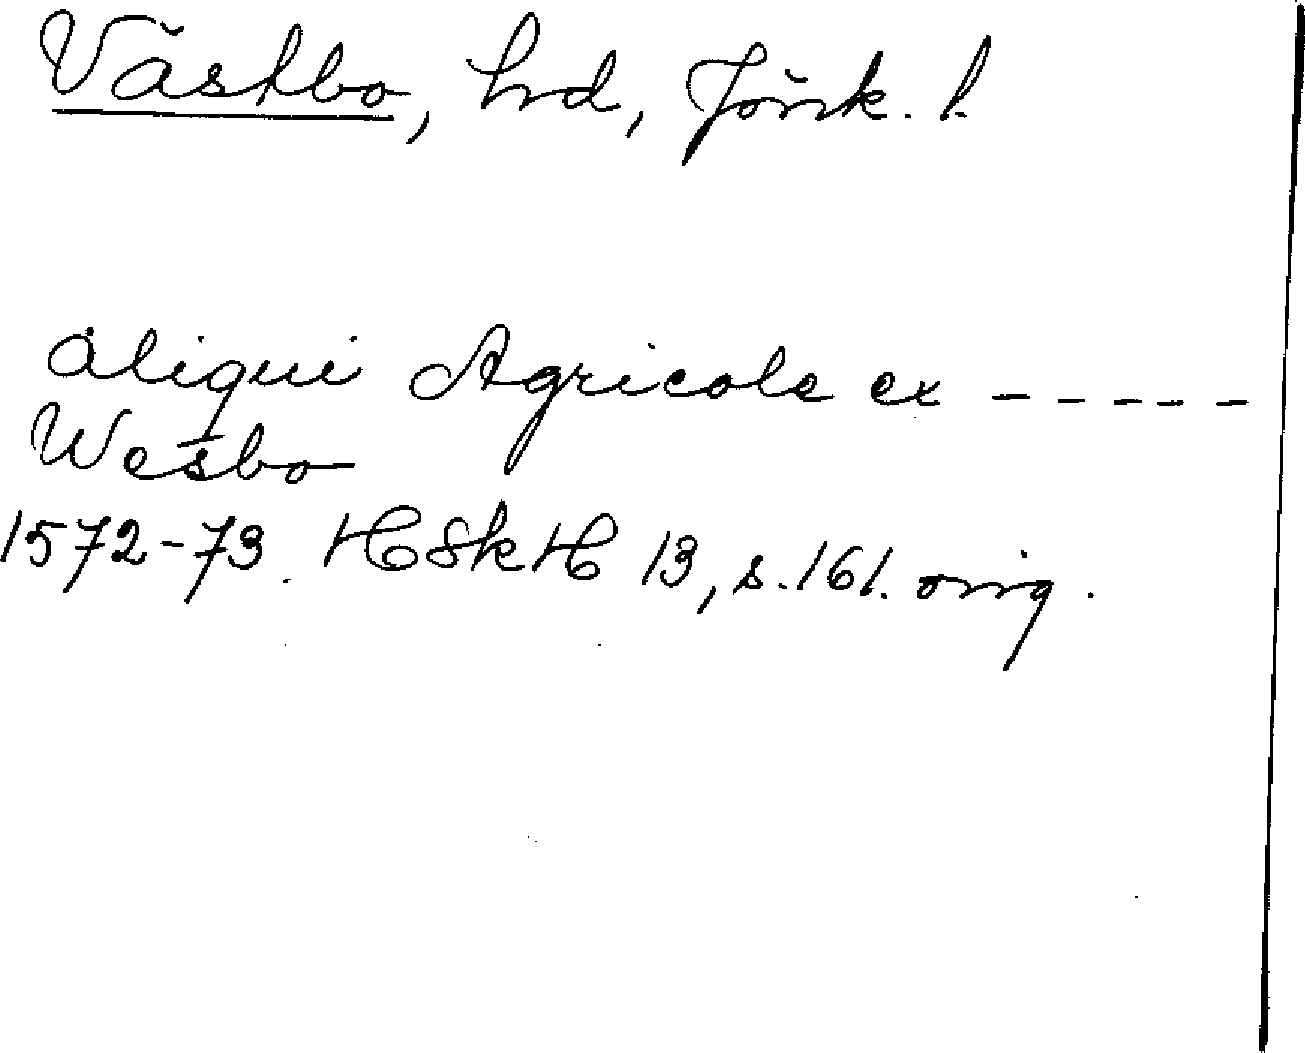 Västbo, hd, Jönk. l.
aliqui Agricole ex - - - - -
Wesbo
1572-73. HSkH 13, s. 161. orig.